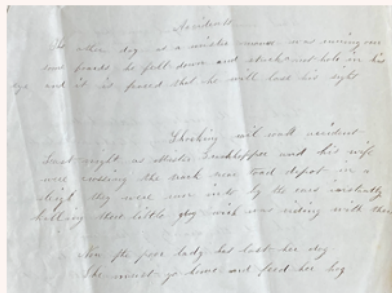 Accidents
The other day as a minister was running on
some boards he fell down and stuck a hole in his
eye and it is feared that he will lose his sight
Shocking rail road accident
Last night as Master and his wife
were crossing the track near road depot in a
sleigh they were run into by the cars instantly
killing there little dog wich was riding with them
Now the poor lady has lost her dog
She must go home and feed her hog